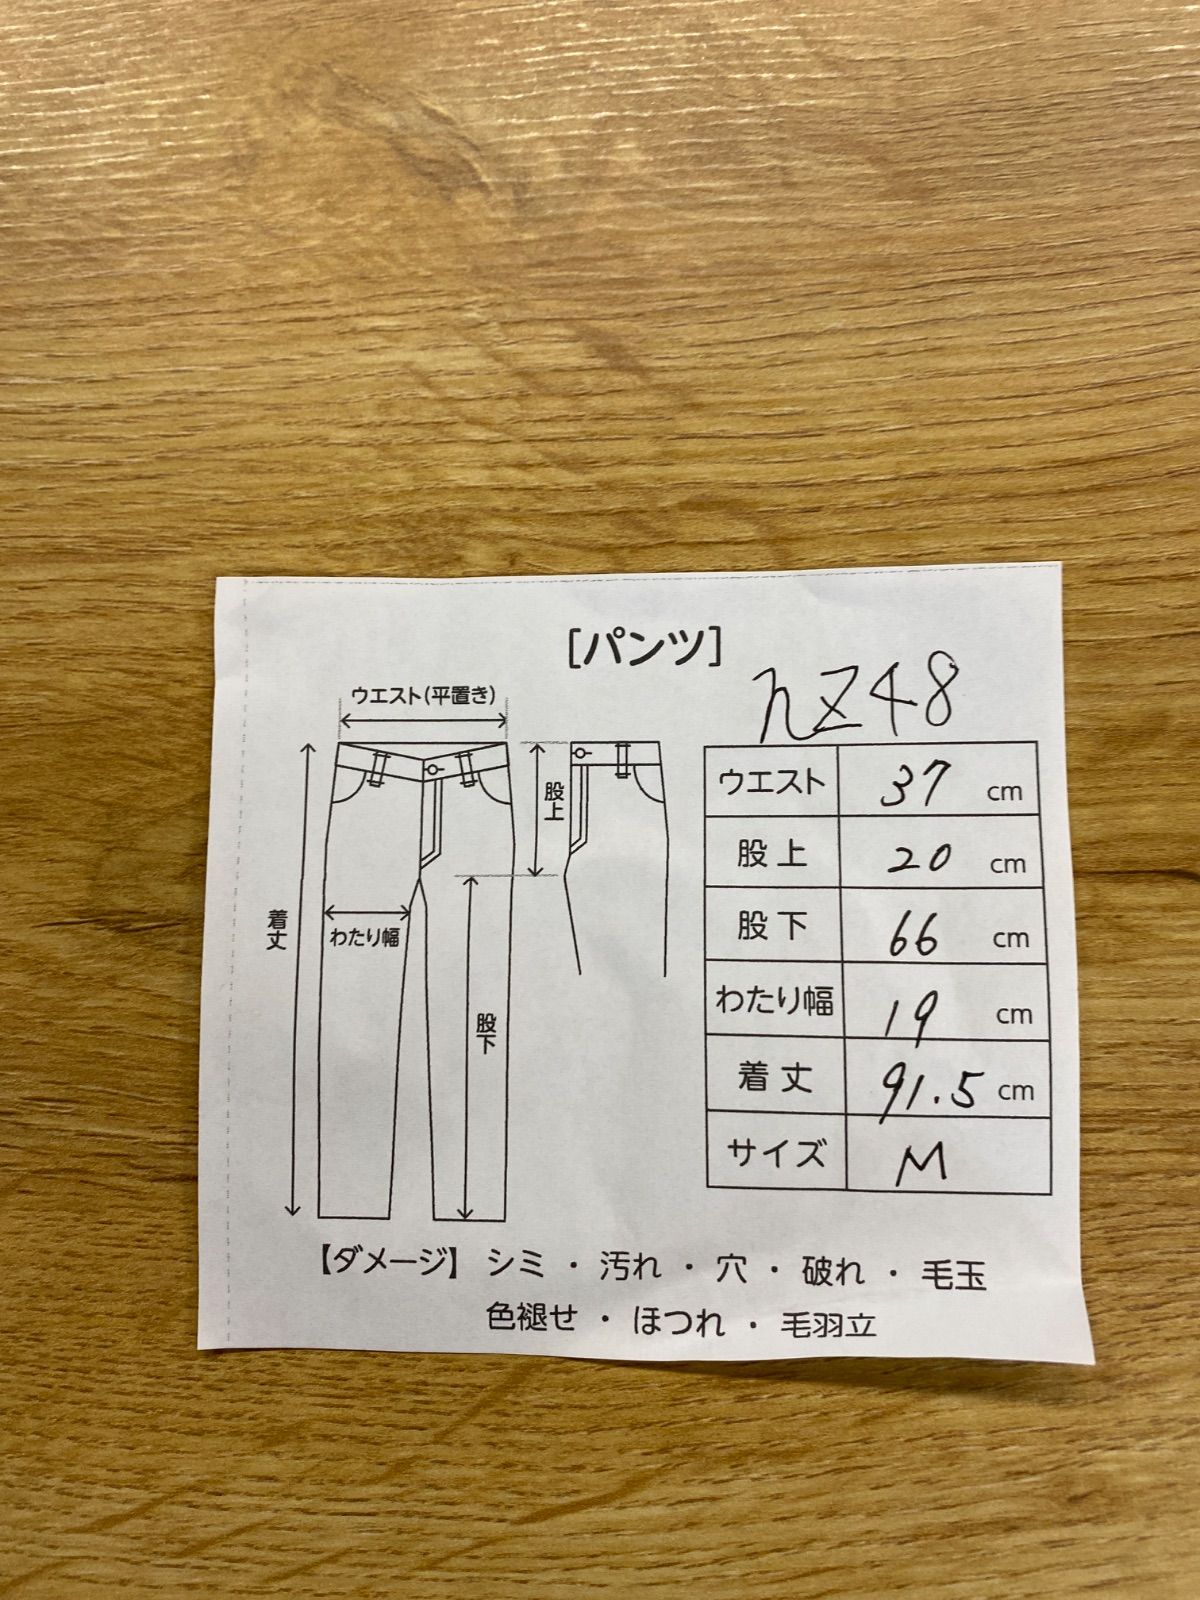 [パンツ]
nz48
ウエスト(平置き)
股上
着丈
わたり幅
股下
ウエスト 37 cm
股上 20 cm
股下 66 cm
わたり幅 19 cm
着丈 91.5 cm
サイズ M
【ダメージ】 シミ ・ 汚れ ・ 穴 ・ 破れ ・ 毛玉
色褪せ ・ ほつれ ・ 毛羽立